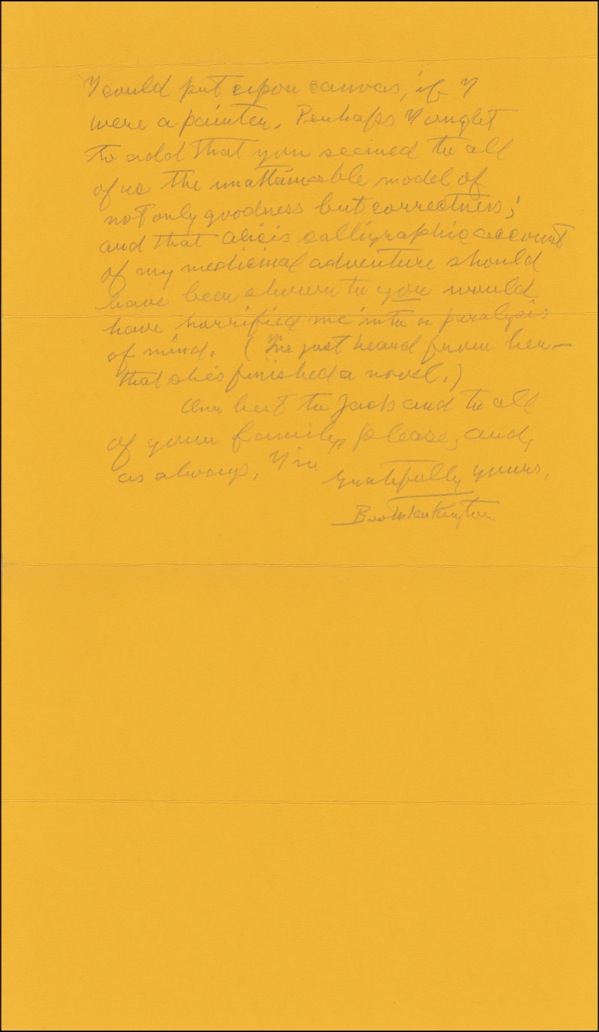 I could put upon canvas, if I
were a painter. Perhaps I ought
to add that you seemed to all
of us the unattainable model of
not only goodness but correctness;
and that Alice's calligraphic account
of my medicinal adventure should
have been shown to you would
have horrified me into a paralysis
of mind. (I've just heard from her—
that she's finished a novel.)
Our best to Jack and to all
of your family, please, and,
as always, I'm
gratefully yours,
Booth Tarkington